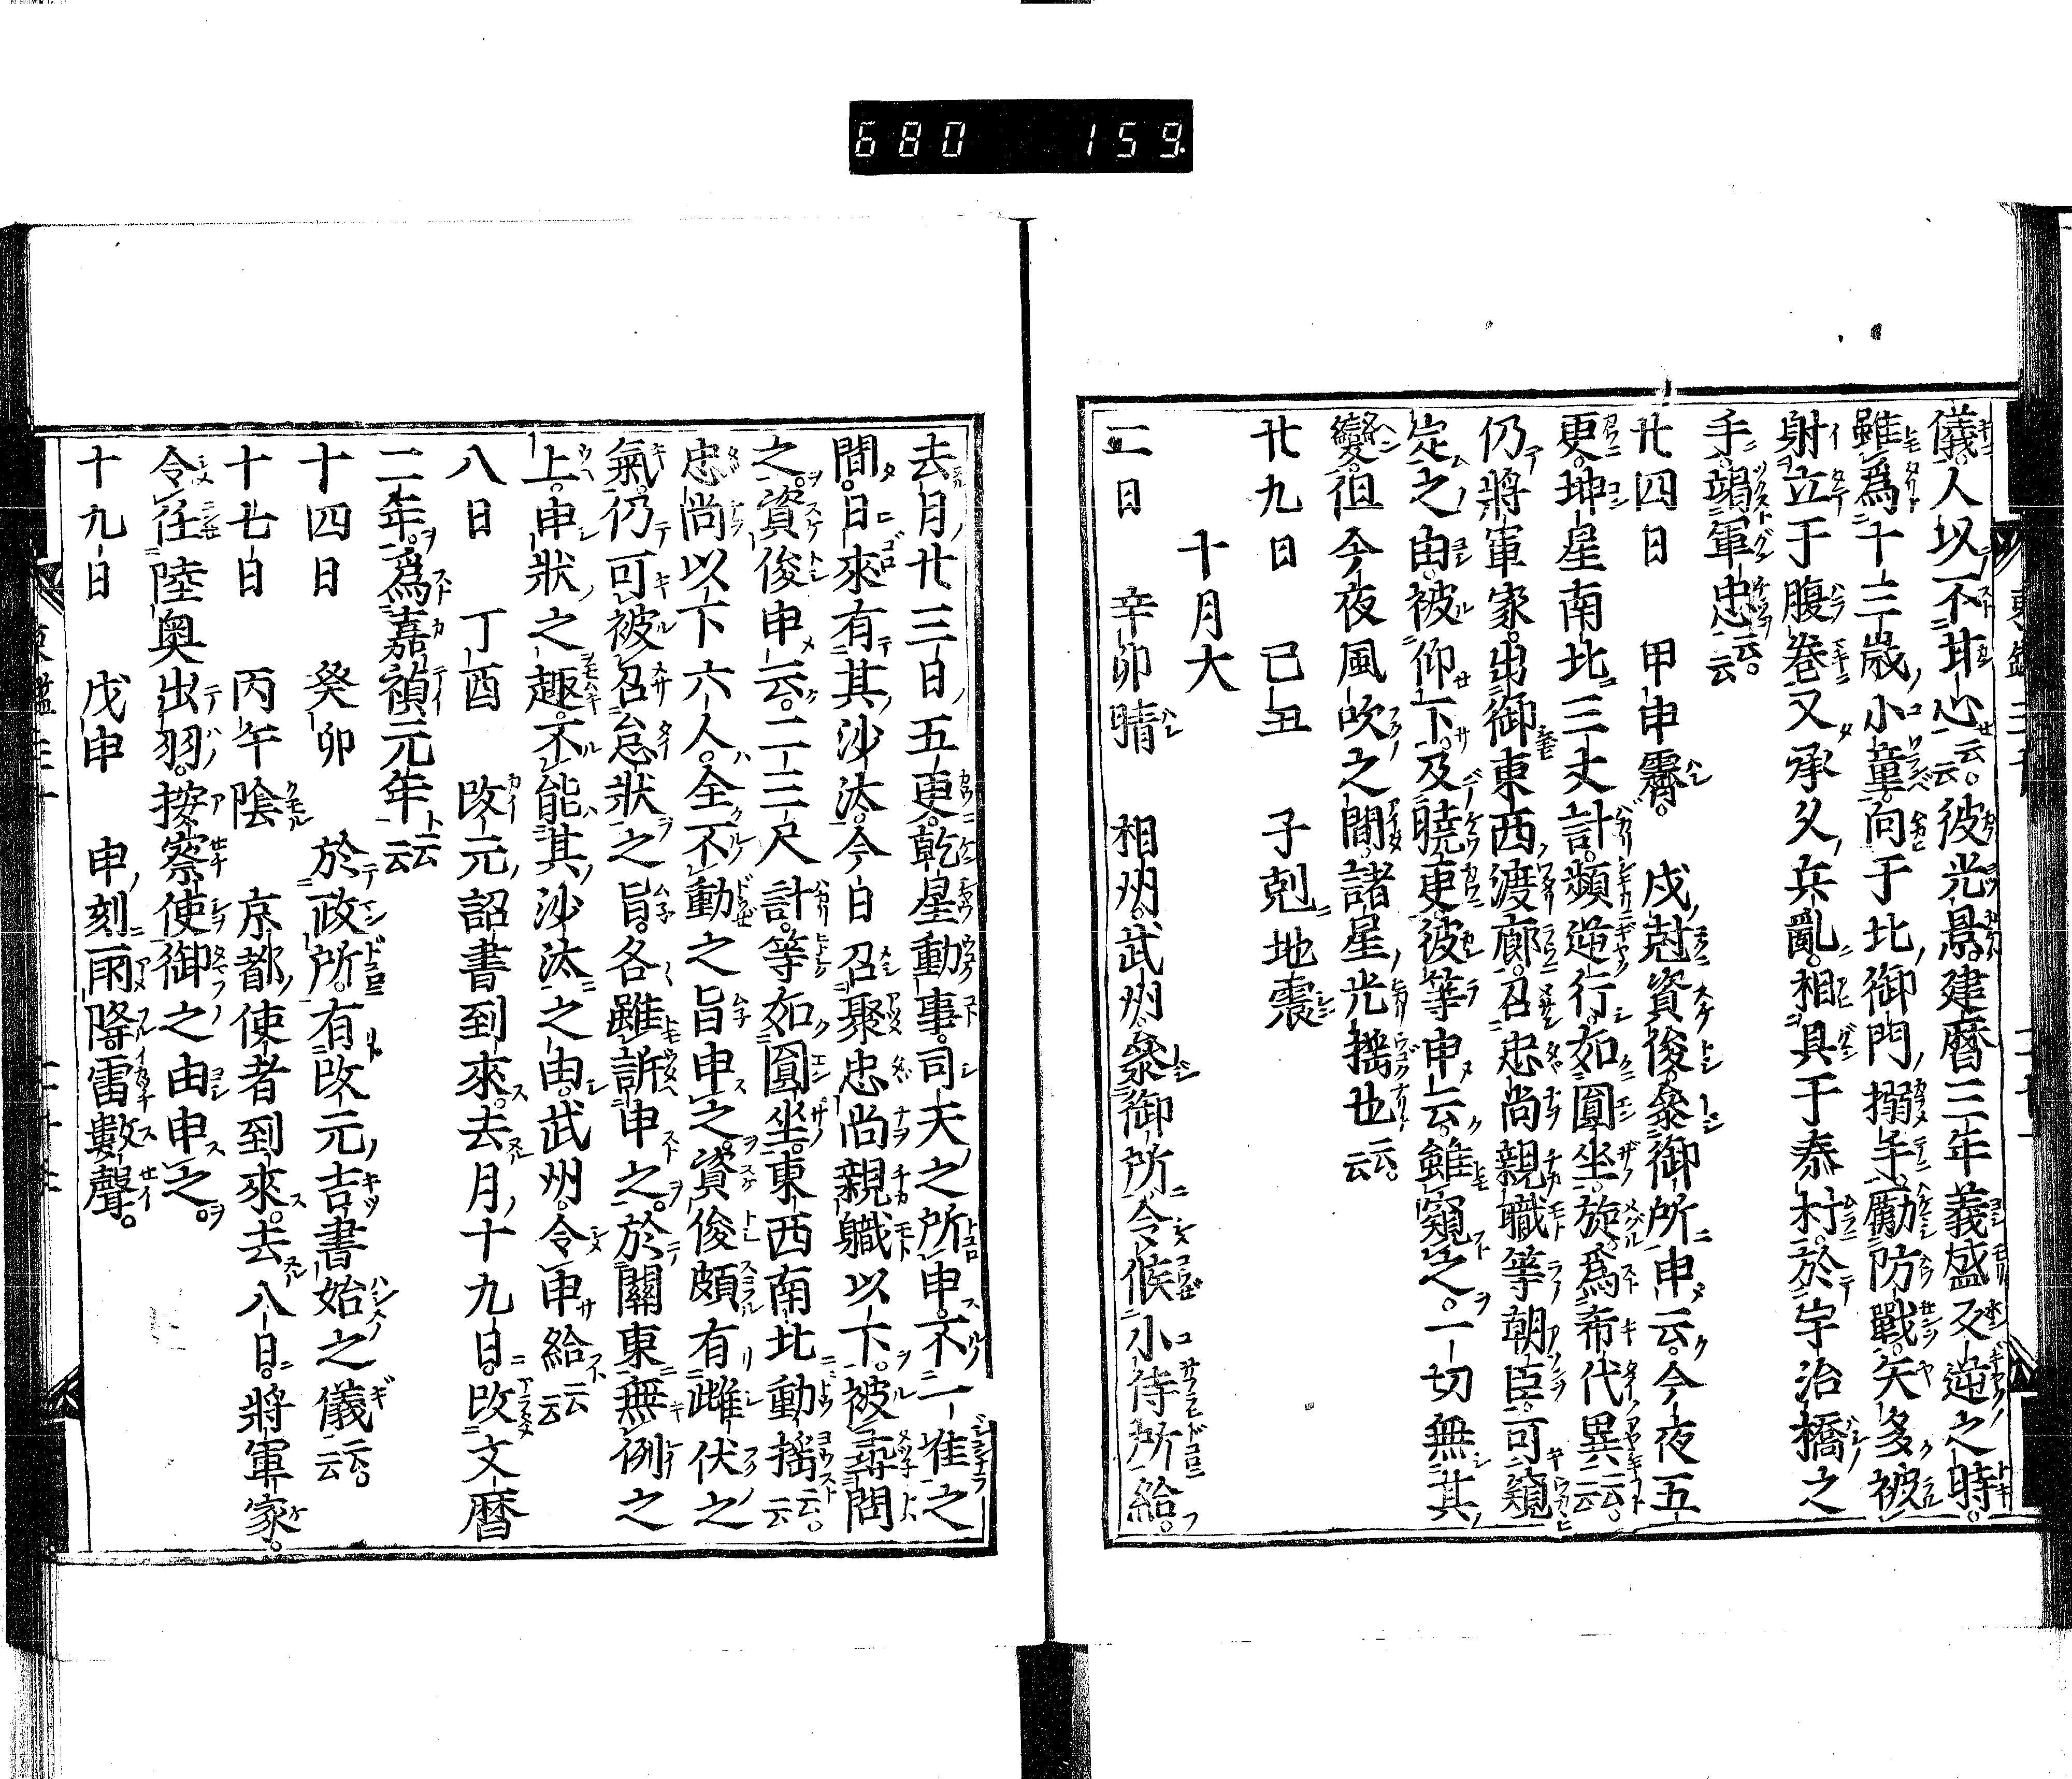 680 159
儀。人以不甘心云云。彼光景。建曆三年義盛叉逆之時。
雖爲十三歲小童。向于北御門。搦手。勵防戰。矢多被
射立于腹卷。又承久兵亂。相具于泰村。於宇治橋之
手。竭軍忠云云。
廿四日　甲申霽。　戌尅資俊參御所。申云。今夜五
更。坤星南北三丈計。頻逆行。如圓坐旋。爲希代異云云。
仍將軍家。出御東西渡廊。召忠尚親職等朝臣。可窺
定之由。被仰下。及曉更。彼等申云。雖窺之。一切無其
變。但今夜風吹之間。諸星光搖也云云。
廿九日　己丑　子剋地震
十月大
二日　辛卯晴　相州。武州。參御所。令候小侍所給。
去月廿三日。五更。乾星動事。司天之所申。不一准之
間。日來有其沙汰。今日召聚忠尚親職以下。被尋問
之。資俊申云。二三尺計。等如圓坐。東西南北動搖云云。
忠尚以下六人。全不動之旨申之。資俊頗有雌伏之
氣。仍可被召怠狀之旨。各雖訴申之。於關東無例之
上。申狀之趣。不能其沙汰之由。武州。令申給云云
八日　丁酉　改元詔書到來。去月十九日。改文曆
二年。爲嘉禎元年云云
十四日　癸卯　於政所。有改元吉書始之儀云云。
十七日　丙午陰　京都使者到來。去八日。將軍家。
令任陸奧出羽。按察使御之由申之。
十九日　戊申　申刻雨降。雷數聲。